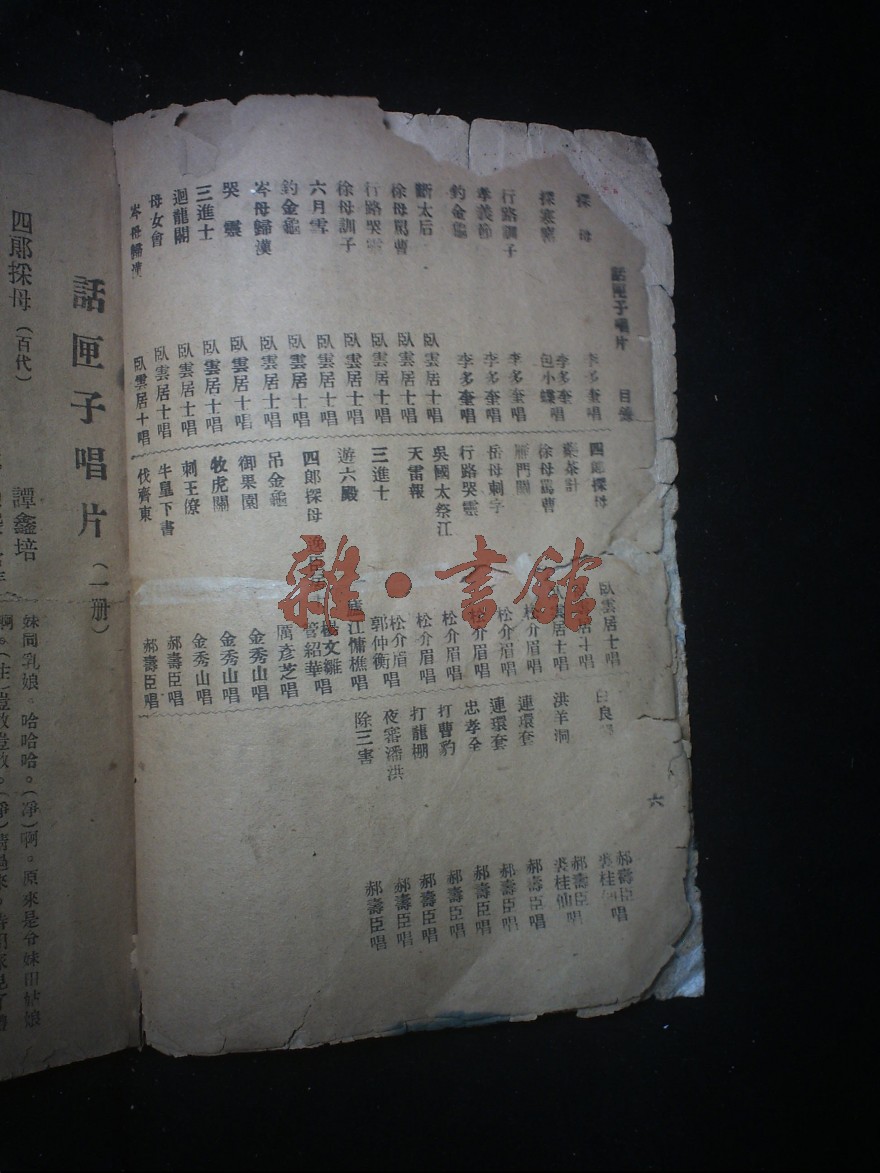 話匣子唱片 目錄
六
探母 李多奎唱
探寒窰 李多奎 包小蝶唱
行路訓子 李多奎唱
孝義節 李多奎唱
釣金龜 李多奎唱
斷太后 臥雲居士唱
徐母罵曹 臥雲居士唱
行路哭靈 臥雲居士唱
徐母訓子 臥雲居士唱
六月雪 臥雲居士唱
釣金龜 臥雲居士唱
岑母歸漢 臥雲居士唱
哭靈 臥雲居士唱
三進士 臥雲居士唱
迴龍閣 臥雲居士唱
母女會 臥雲居士唱
岑母歸漢 臥雲居士唱
四郎探母 臥雲居士唱
藥茶計 居士唱
徐母罵曹 雲居士唱
雁門關 松介眉唱
岳母刺字 松介眉唱
行路哭靈 松介眉唱
吳國太祭江 松介眉唱
天雷報 松介眉唱
三進士 郭仲衡 松介眉唱
遊六殿 江傭樵唱
四郎探母 管紹華 楊文雛唱
吊金龜 厲彥芝唱
御果園 金秀山唱
牧虎關 金秀山唱
刺王僚 金秀山唱
牛皐下書 郝壽臣唱
伐齊東 郝壽臣唱
白良 裘桂 郝壽臣唱
洪羊洞 裘桂仙 郝壽臣唱
連環套 郝壽臣唱
連環套 郝壽臣唱
忠孝全 郝壽臣唱
打曹豹 郝壽臣唱
打龍棚 郝壽臣唱
夜審潘洪 郝壽臣唱
除三害 郝壽臣唱
話匣子唱片（一册）
四郎探母（百代） 譚鑫培
妹同乳娘。哈哈哈。（淨）啊。原來是令妹
雜·書館